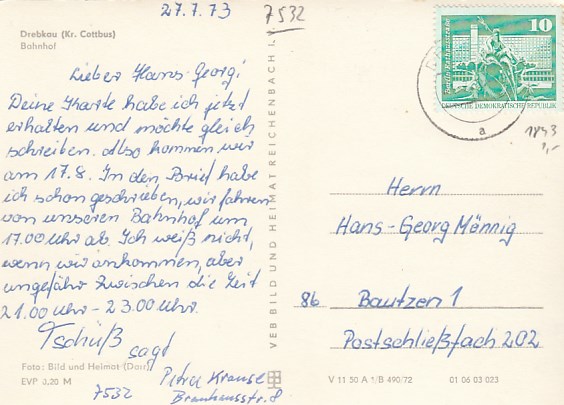 27.7.73
7532
Drebkau (Kr. Cottbus)
Bahnhof
Lieber Hans-Georg!
Deine Karte habe ich jetzt
erhalten und möchte gleich
schreiben. Also kommen wir
am 17.8. In den Brief habe
ich schon geschrieben, wir fahren
von unseren Bahnhof um
17.00 Uhr ab. Ich weiß nicht,
wenn wir ankommen, aber
ungefähr zwischen die Zeit
21.00 Uhr - 23.00 Uhr.
Tschüß
sagt
Petra Krause
Brauhausstr. 8
7532
Foto: Bild und Heimat
EVP 0,20 M
VEB BILD UND HEIMAT REICHENBACH I. V.
10
DEUTSCHE DEMOKRATISCHE REPUBLIK
a
1843
1,-
Herrn
Hans-Georg Männig
86 Bautzen 1
Postschließfach 202
V 11 50 A 1/B 490/72 01 06 03 023